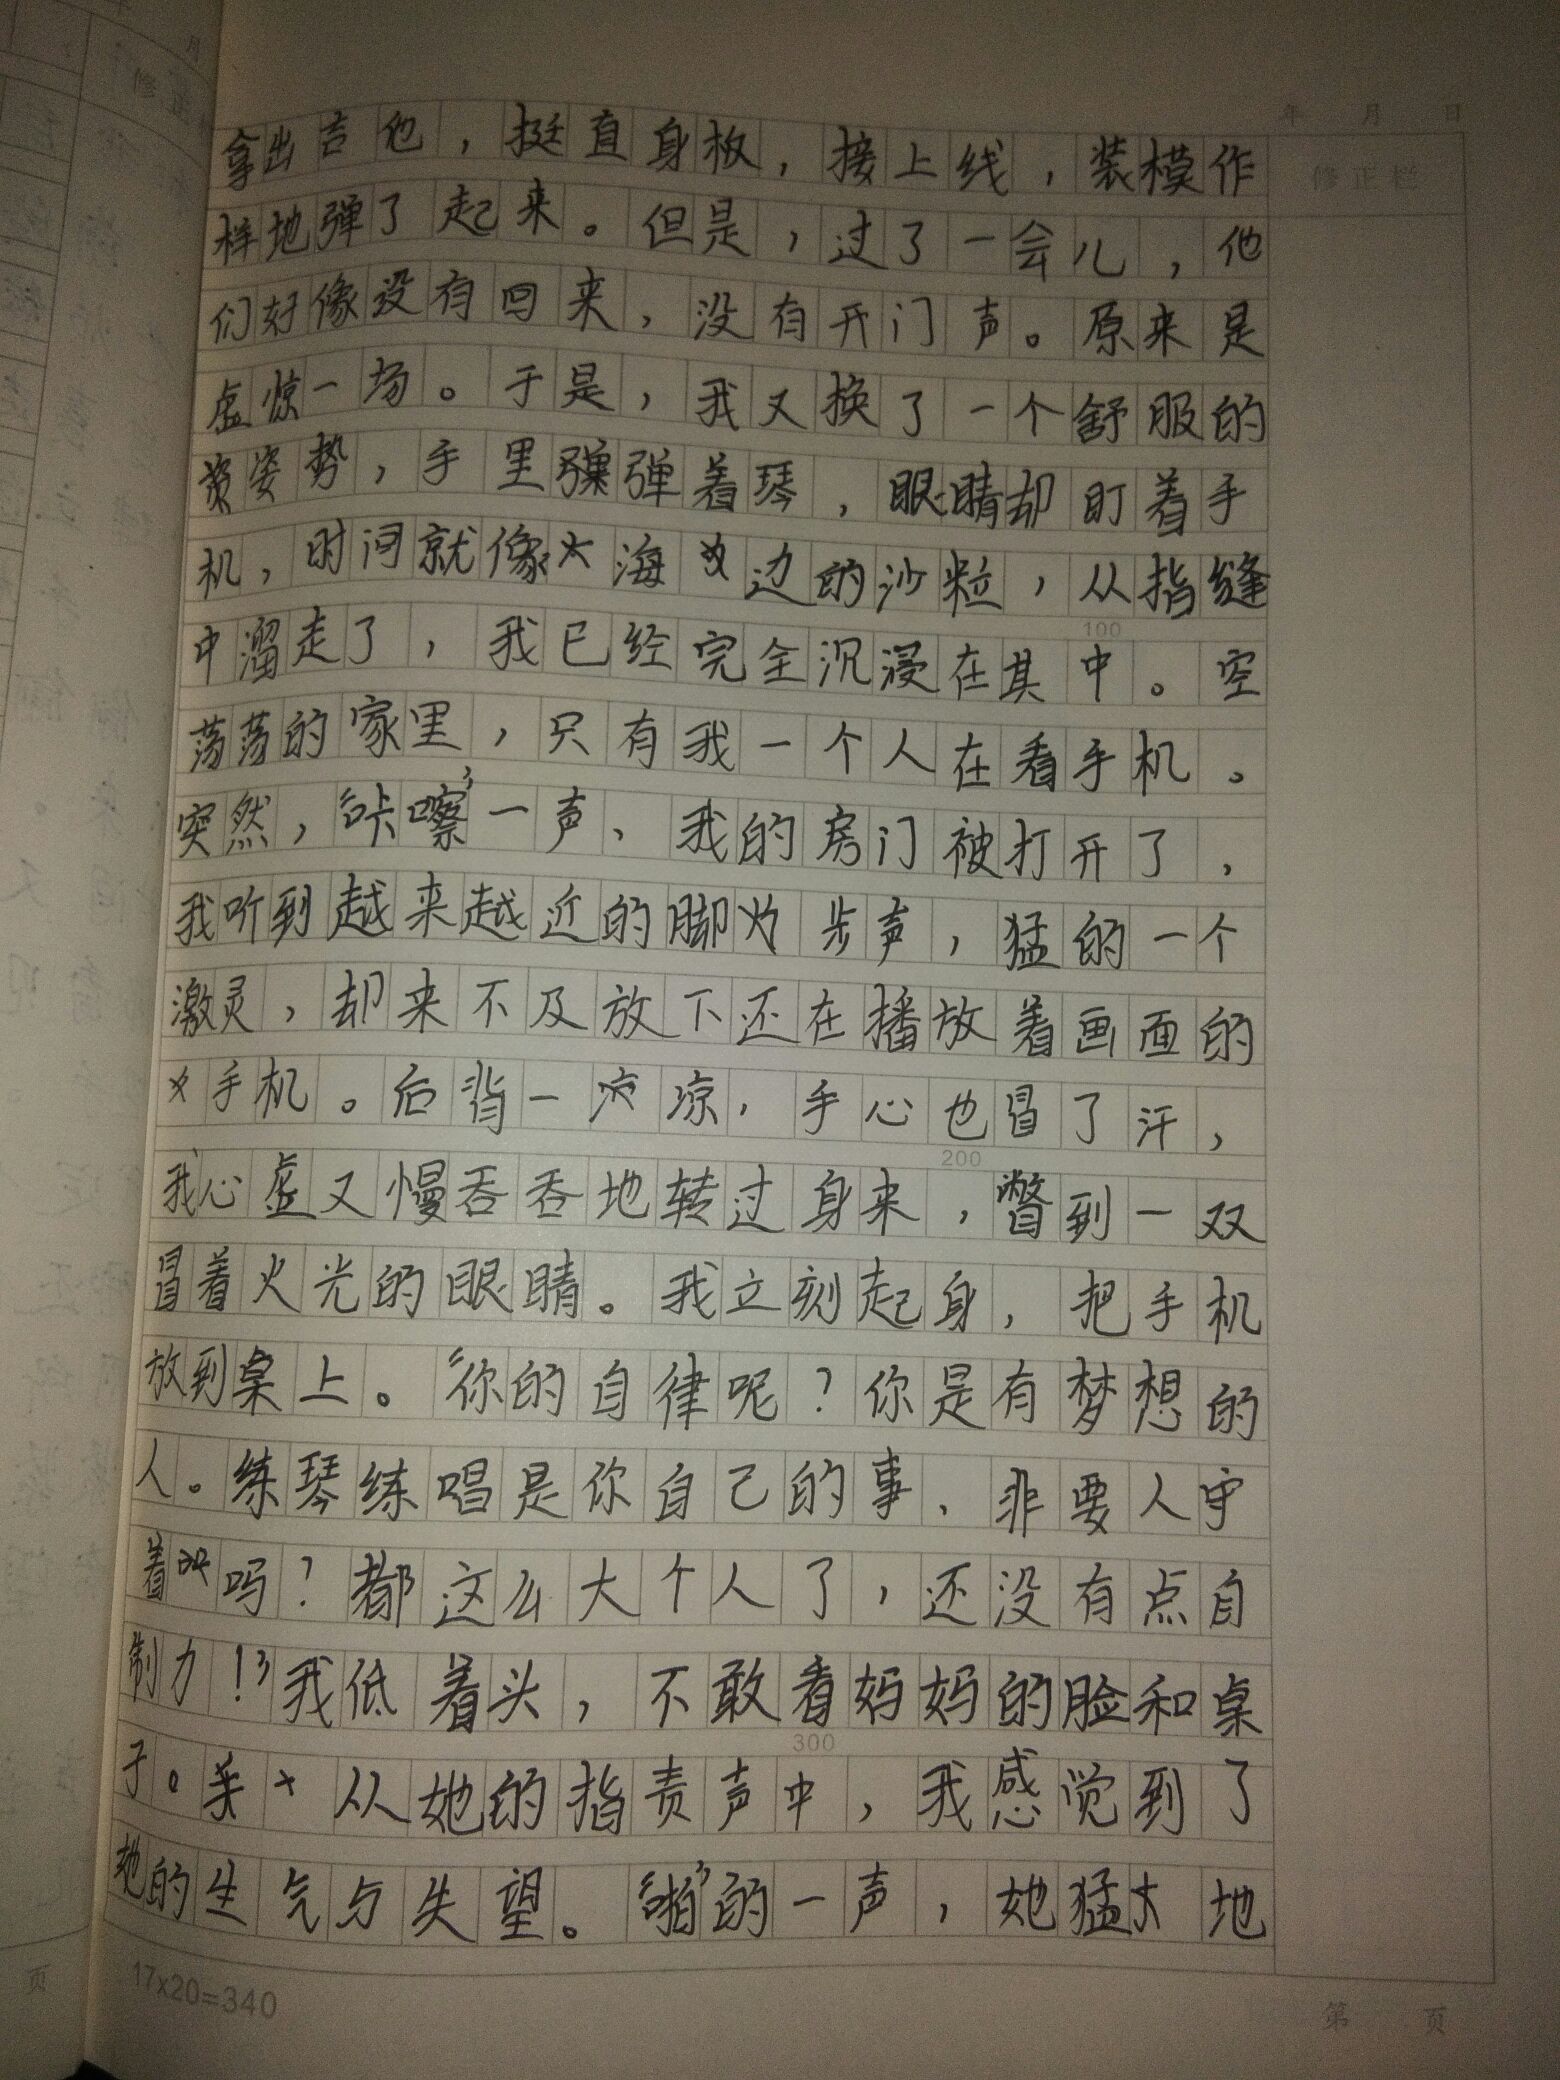 年 月 日
修正栏
拿出吉他，挺直身板，接上线，装模作
样地弹了起来。但是，过了一会儿，他
们好像没有回来，没有开门声。原来是
虚惊一场。于是，我又换了一个舒服的
姿势，手里弹着琴，眼睛却盯着手
机，时间就像海边的沙粒，从指缝
100
中溜走了，我已经完全沉浸在其中。空
荡荡的家里，只有我一个人在看手机。
突然，“咔嚓”一声，我的房门被打开了，
我听到越来越近的脚步声，猛的一个
激灵，却来不及放下还在播放着画面的
手机。后背一凉，手心也冒了汗，
200
我心虚又慢吞吞地转过身来，瞥到一双
冒着火光的眼睛。我立刻起身，把手机
放到桌上。“你的自律呢？你是有梦想的
人。练琴练唱是你自己的事，非要人守
着吗？都这么大个人了，还没有点自
制力！”我低着头，不敢看妈妈的脸和桌
300
子。从她的指责声中，我感觉到了
她的生气与失望。“啪”的一声，她猛地
17x20=340
第 页
页